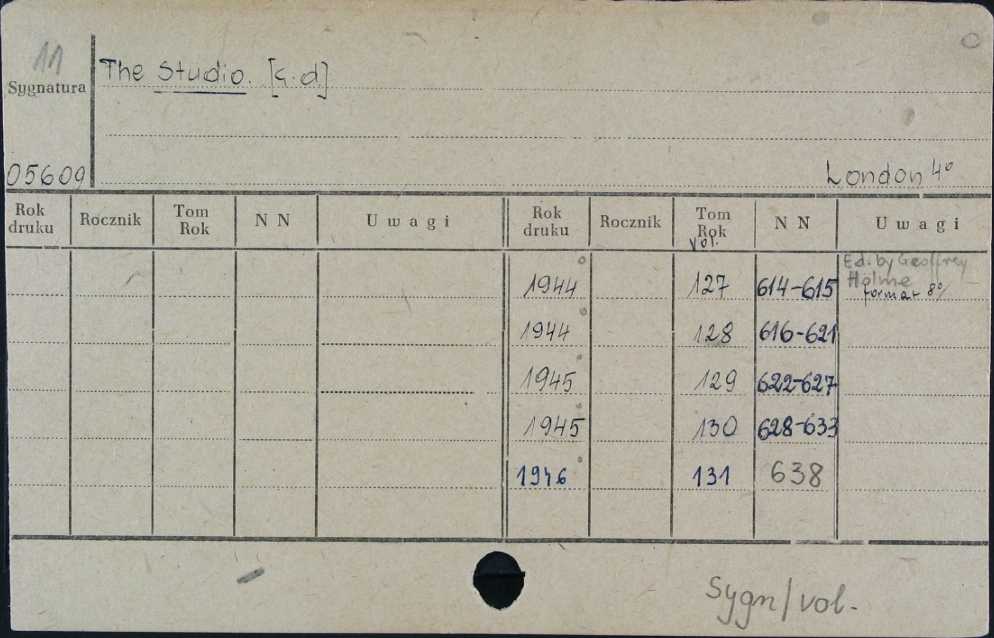 11
Sygnatura
The Studio. [G.d]
05609
London 4°
Rok druku Rocznik Tom Rok N N Uwagi Rok druku Rocznik Tom Rok N N Uwagi
vol. Ed. by Geoffrey
1944 127 614-615 Holme
format 8°
1944 128 616-621
1945 129 622-627
1945 130 628-633
1946 131 638
Sygn/vol.